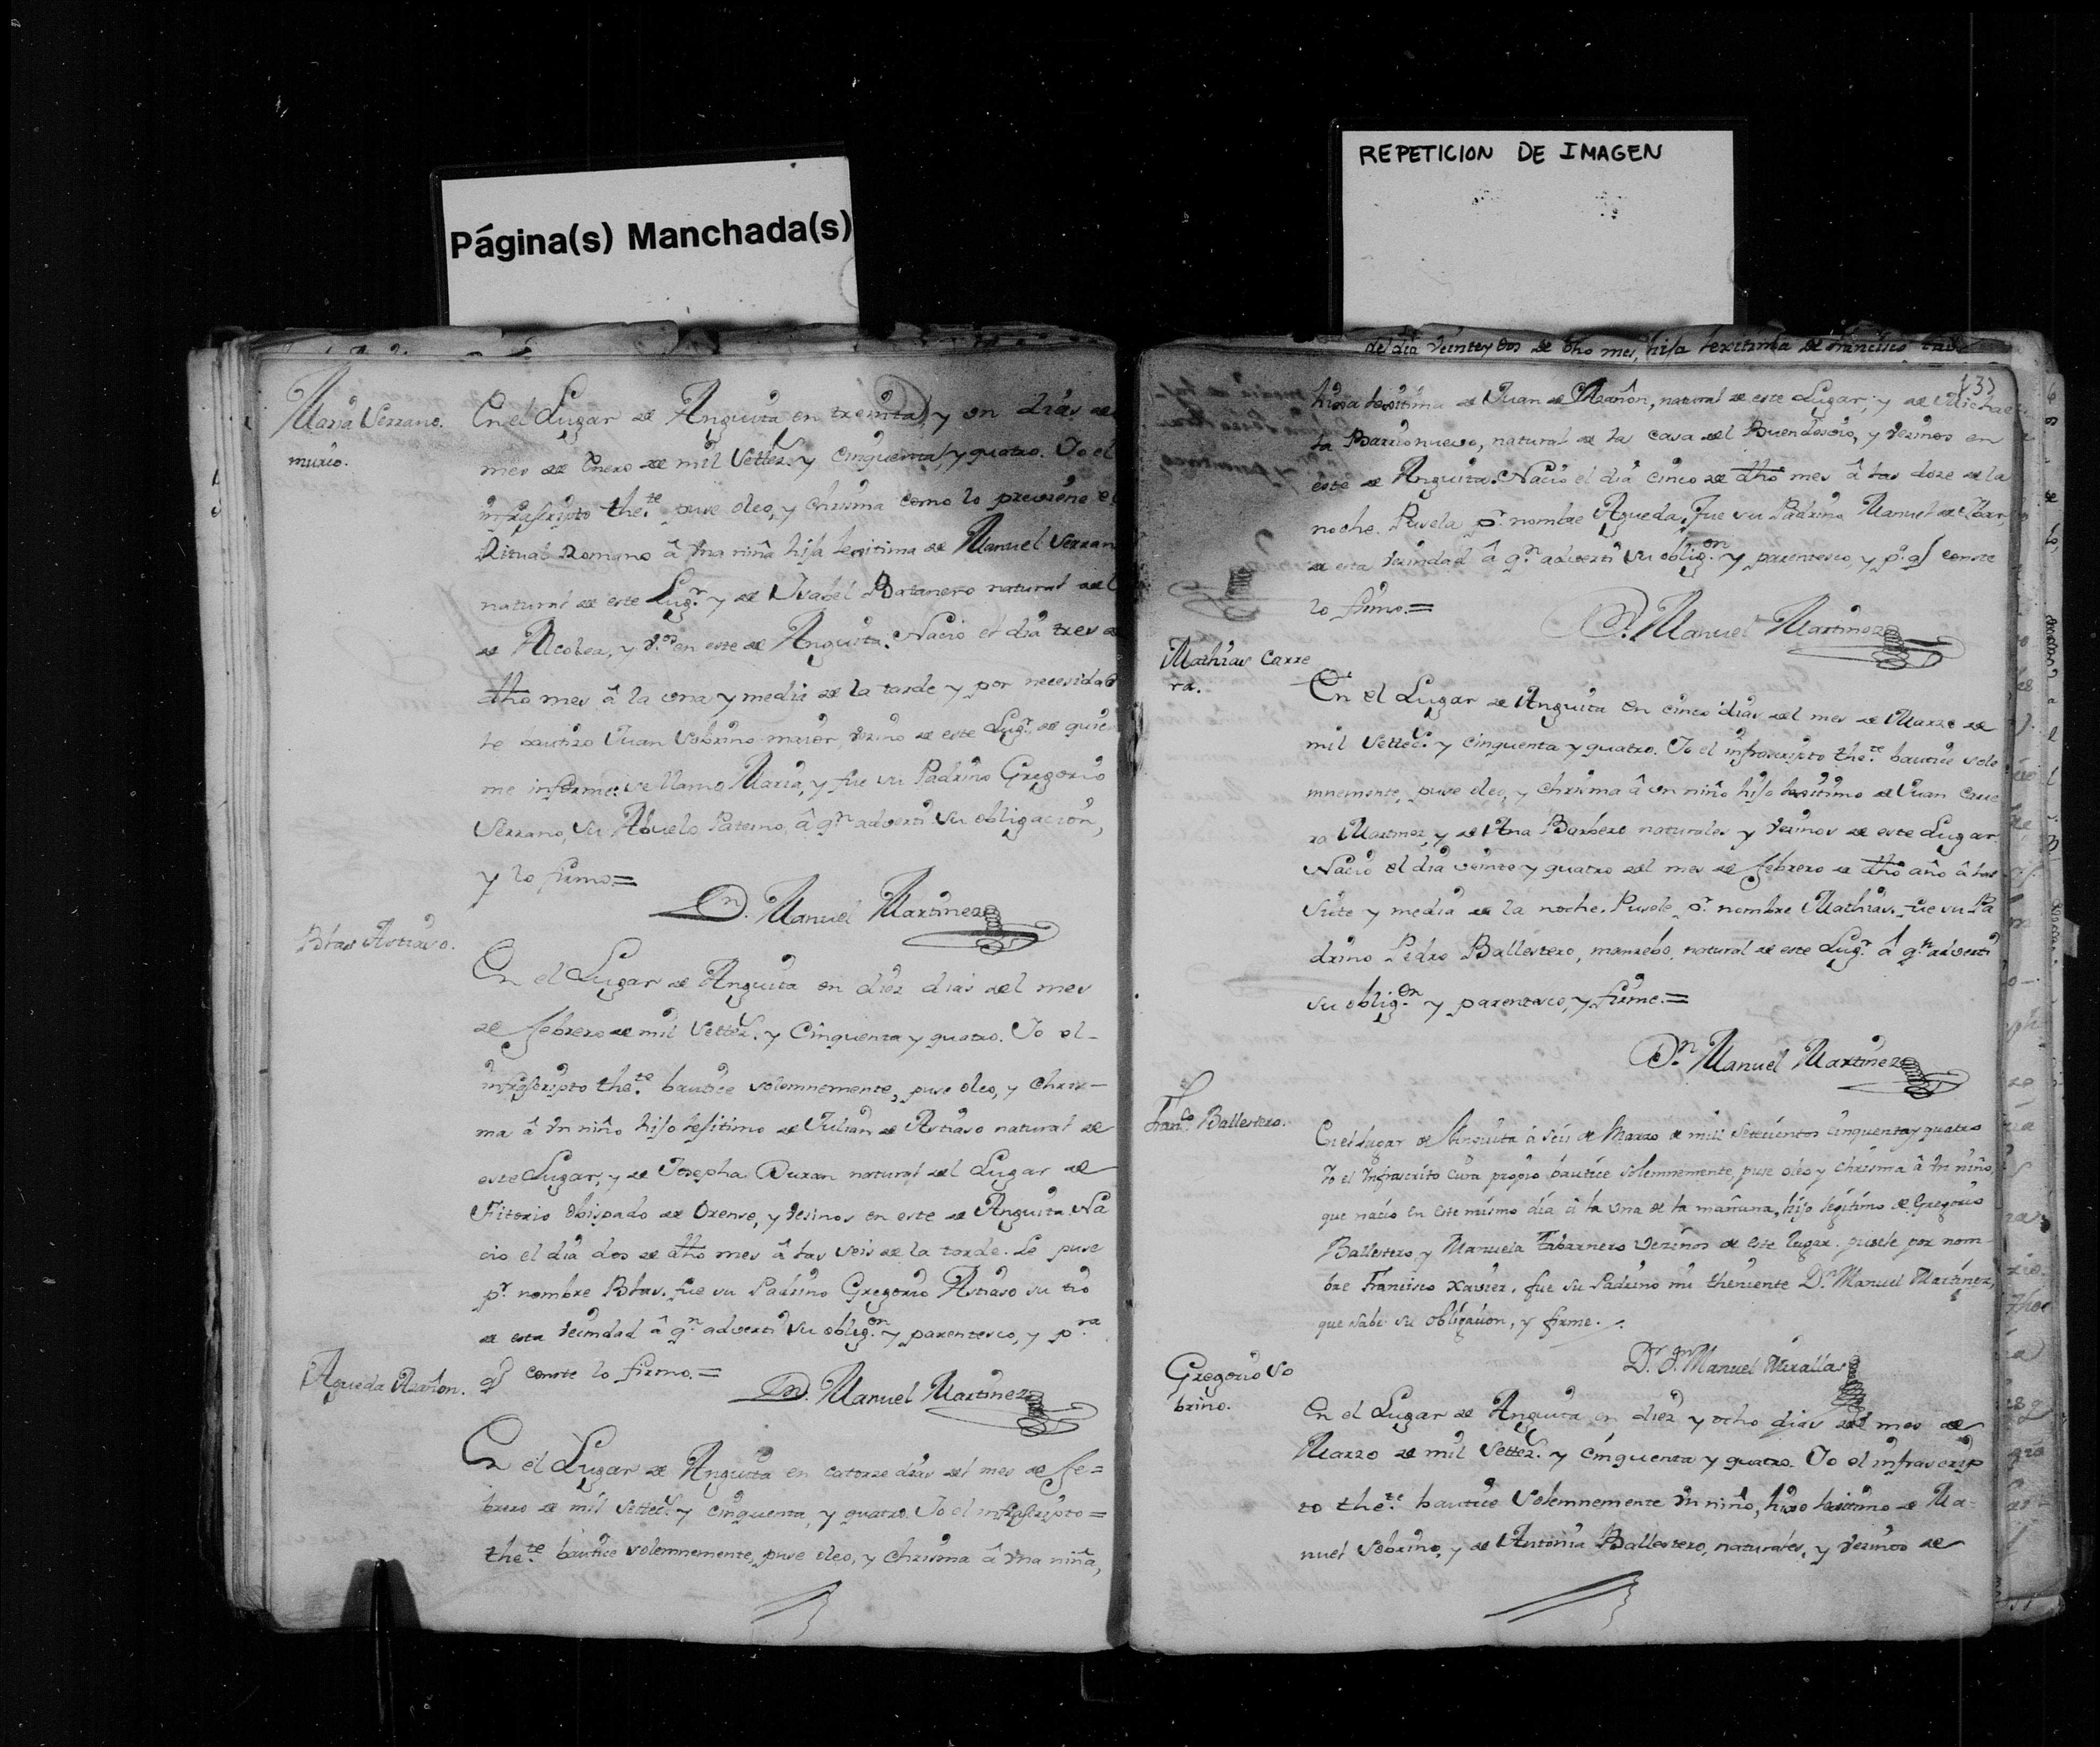 Página(s) Manchada(s)
REPETICION DE IMAGEN
Maria Serrano.
murio.
En el Lugar de Anguita en treinta, y un dias de
mes de Enero de mil Settez.s y cinquenta, y quatro. Yo el
infrascripto the.te puse oleo, y chrisma como lo previene el
Ritual Romano â Vna niña hija lexitima de Manuel Serran
natural de este Lug.r y de Ysabel Batanero natural del
de Alcolea, y v.os en este de Anguita. Nacio el dia tres de
dho mes â la una y media de la tarde y por necesidad
le bautizo Juan Sobrino maior, vezino de este Lug.r, de quien
me informe: se llamo Maria, y fue su Padrino Gregorio
Serrano, su Abuelo Paterno, â q.n adverti su obligacion,
y lo firmo.=
D.n Manuel Martinez
Blas Astiaso.
En el Lugar de Anguita en diez dias del mes
de febrero de mil Settez.s y Cinquenta y quatro. Yo el-
infrascripto the.te bautize solemnemente, puse oleo, y chris-
ma â Vn niño hijo lejitimo de Julian de Astiaso natural de
este Lugar, y de Josepha Duran natural del Lugar de
Fitorio Obispado de Orense, y vesinos en este de Anguita. Na
cio el dia dos de dho mes â las seis de la tarde. Le puse
p.r nombre Blas. fue su Padrino Gregorio Astiaso su tio
de esta vecindad â q.n adverti su oblig.on y parentesco, y p.ra
q conste lo firmo.=
D.n Manuel Martinez
Agueda Mañon.
En el Lugar de Anguita en catorze dias del mes de fe=
brero de mil Settec.s y cinquenta, y quatro. Yo el infrascripto=
the.te bautize solemnemente, puse oleo, y chrisma â Vna niña,
del dia veinte y dos de dho mes, hija lexitima de francisco
hija lexitima de Juan de Mañon, natural de este Lugar, y de Michae
la Barrionuevo, natural de la casa del Buendesvio, y vezinos en
este de Anguita. Nacio el dia cinco de dho mes â las doze de la
noche. Pusela p.r nombre Agueda. Fue su Padrino Manuel de
de esta vezindad â q.n adverti su oblig.on y parentesco, y p.a q conste
lo firmo.=
D.n Manuel Martinez
Mathias Carre
ra.
En el Lugar de Anguita en cinco dias del mes de Marzo de
mil Settec.s y cinquenta y quatro. Yo el infrascripto the.te bautize sole
mnemente, puse oleo, y chrisma â un niño hijo lexitimo de Juan Carre
ra Martinez, y de Ana Barbero naturales y vezinos de este Lugar.
Nacio el dia veinte y quatro del mes de febrero de dho año â las
Siete y media de la noche. Pusele p.r nombre Mathias. fue su Pa
drino Pedro Ballestero, manzebo, natural de este Lug.r â q.n adverti
su oblig.on y parentesco, y firme.=
D.n Manuel Martinez
Fran.co Ballestero.
En el Lugar de Anguita â seis de Marzo de mill setecientos cinquenta y quatro
Yo el Infrascrito Cura propio bautize solemnemente, puse oleo y chrisma â Vn niño,
que nacio en este mismo dia â la una de la mañana, hijo legitimo de Gregorio
Ballestero y Manuela Tabarnero vezinos de este lugar. pusele por nom-
bre Francisco Xavier. fue su Padrino mi theniente D.n Manuel Martinez,
que sabe su obligacion, y firme.
D.r D.n Manuel Miralla
Gregorio So
brino.
En el Lugar de Anguita en diez y ocho dias del mes de
Marzo de mil Settez.s y cinquenta y quatro. Yo el infrascrip
to the.te bautize Solemnemente Vn niño, hijo lexitimo de Ma=
nuel Sobrino, y de Antonia Ballestero, naturales, y vezinos de